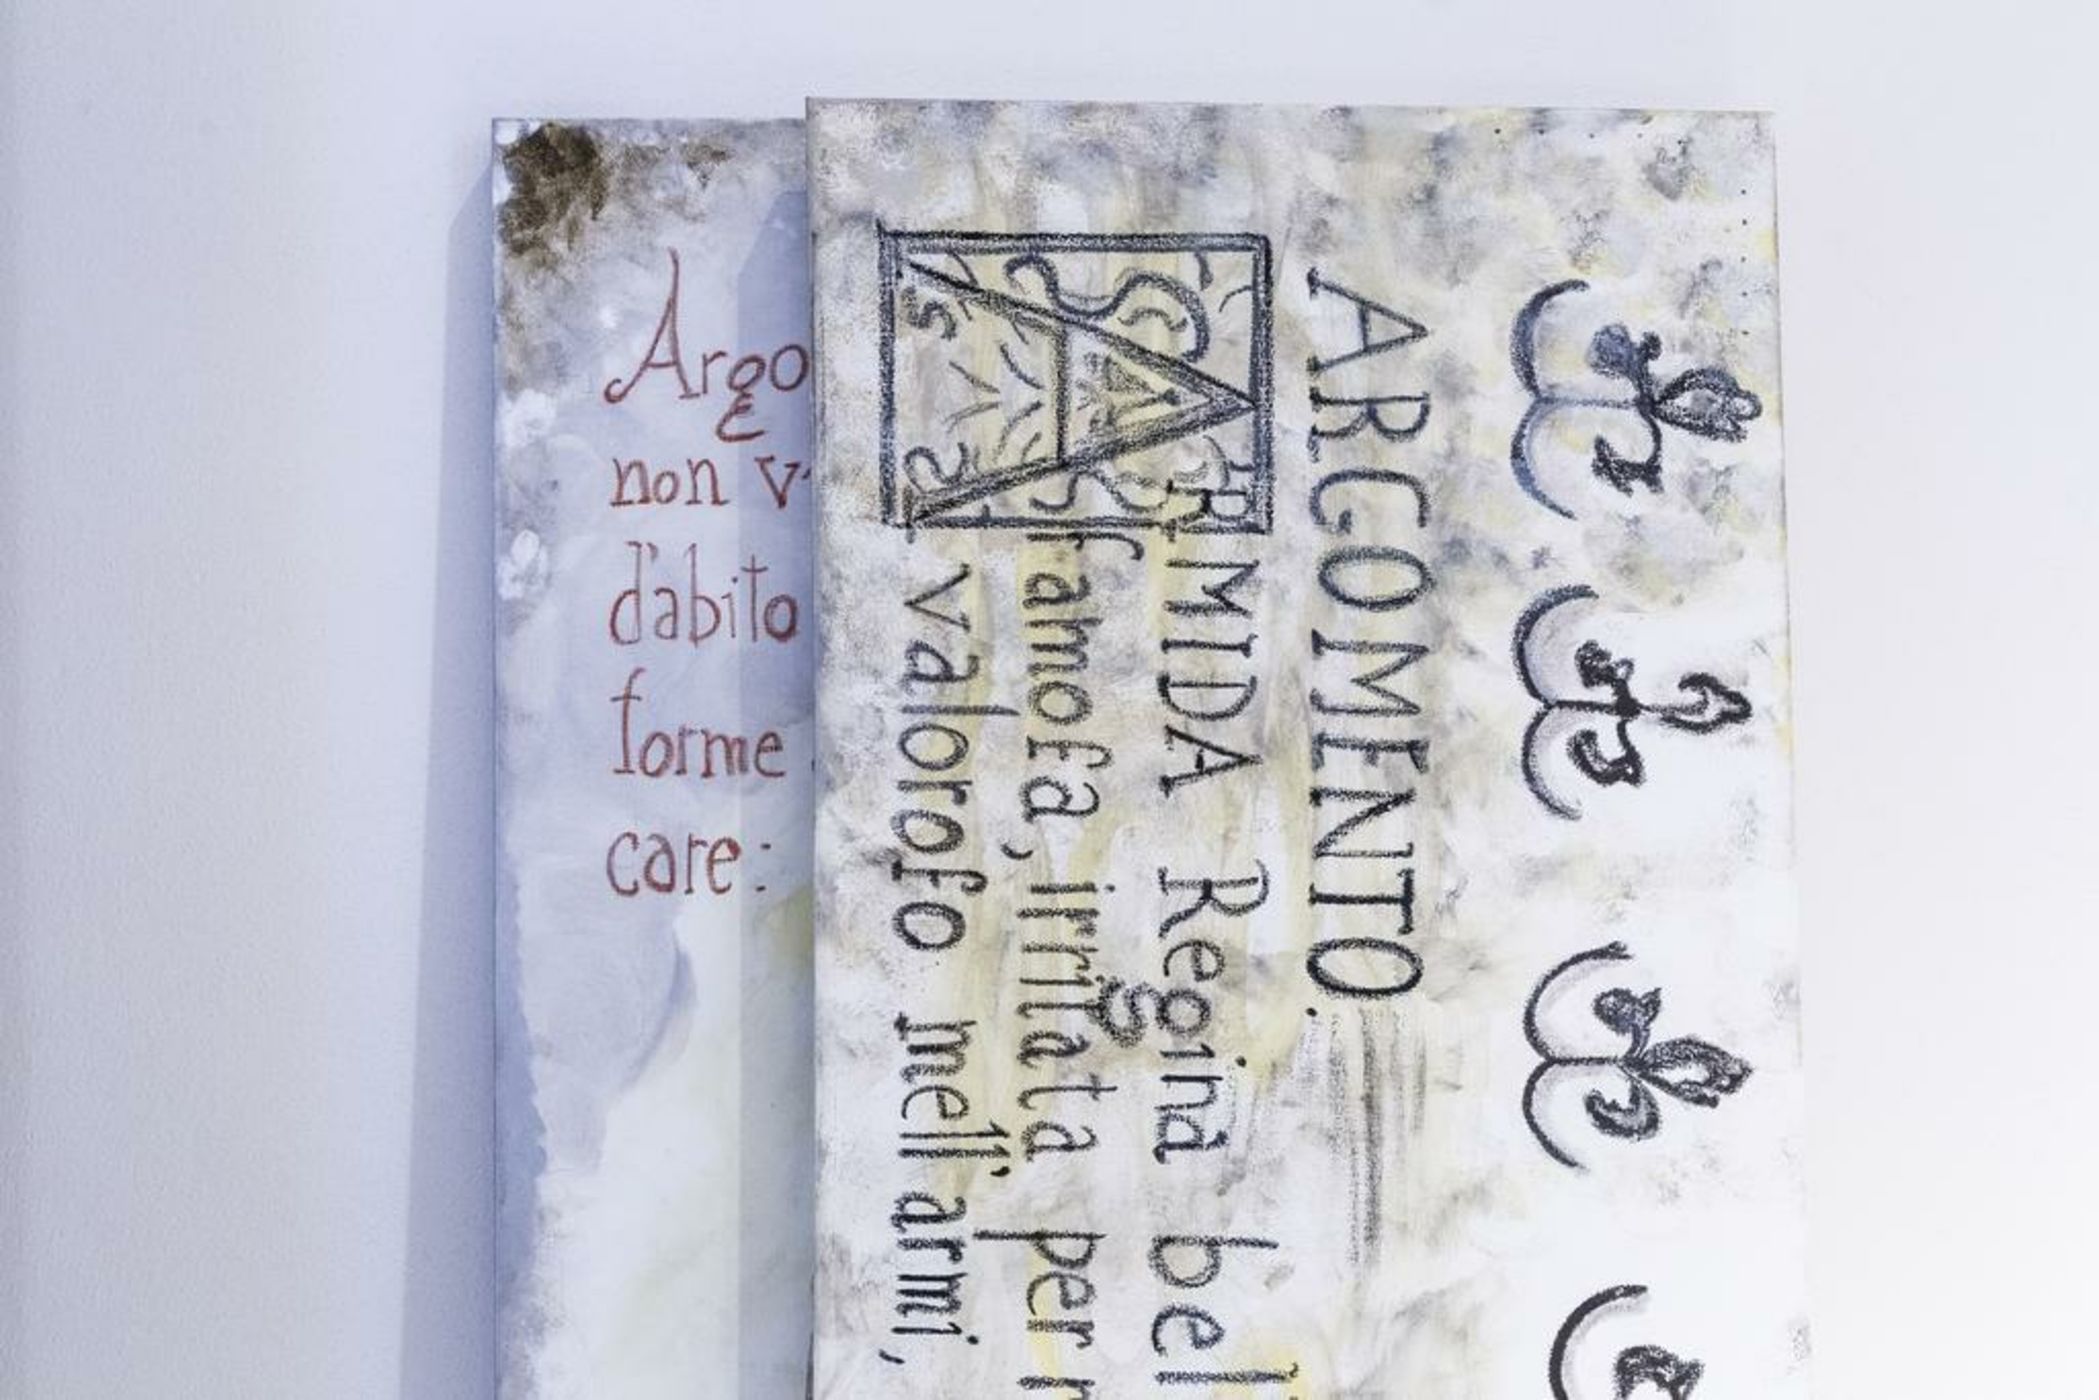 Argo
non v
d'abito
forme
care:
ARGOMENTO.
ARMIDA Regina bel
famoſa, irritata per n
valoroſo mell'armi,